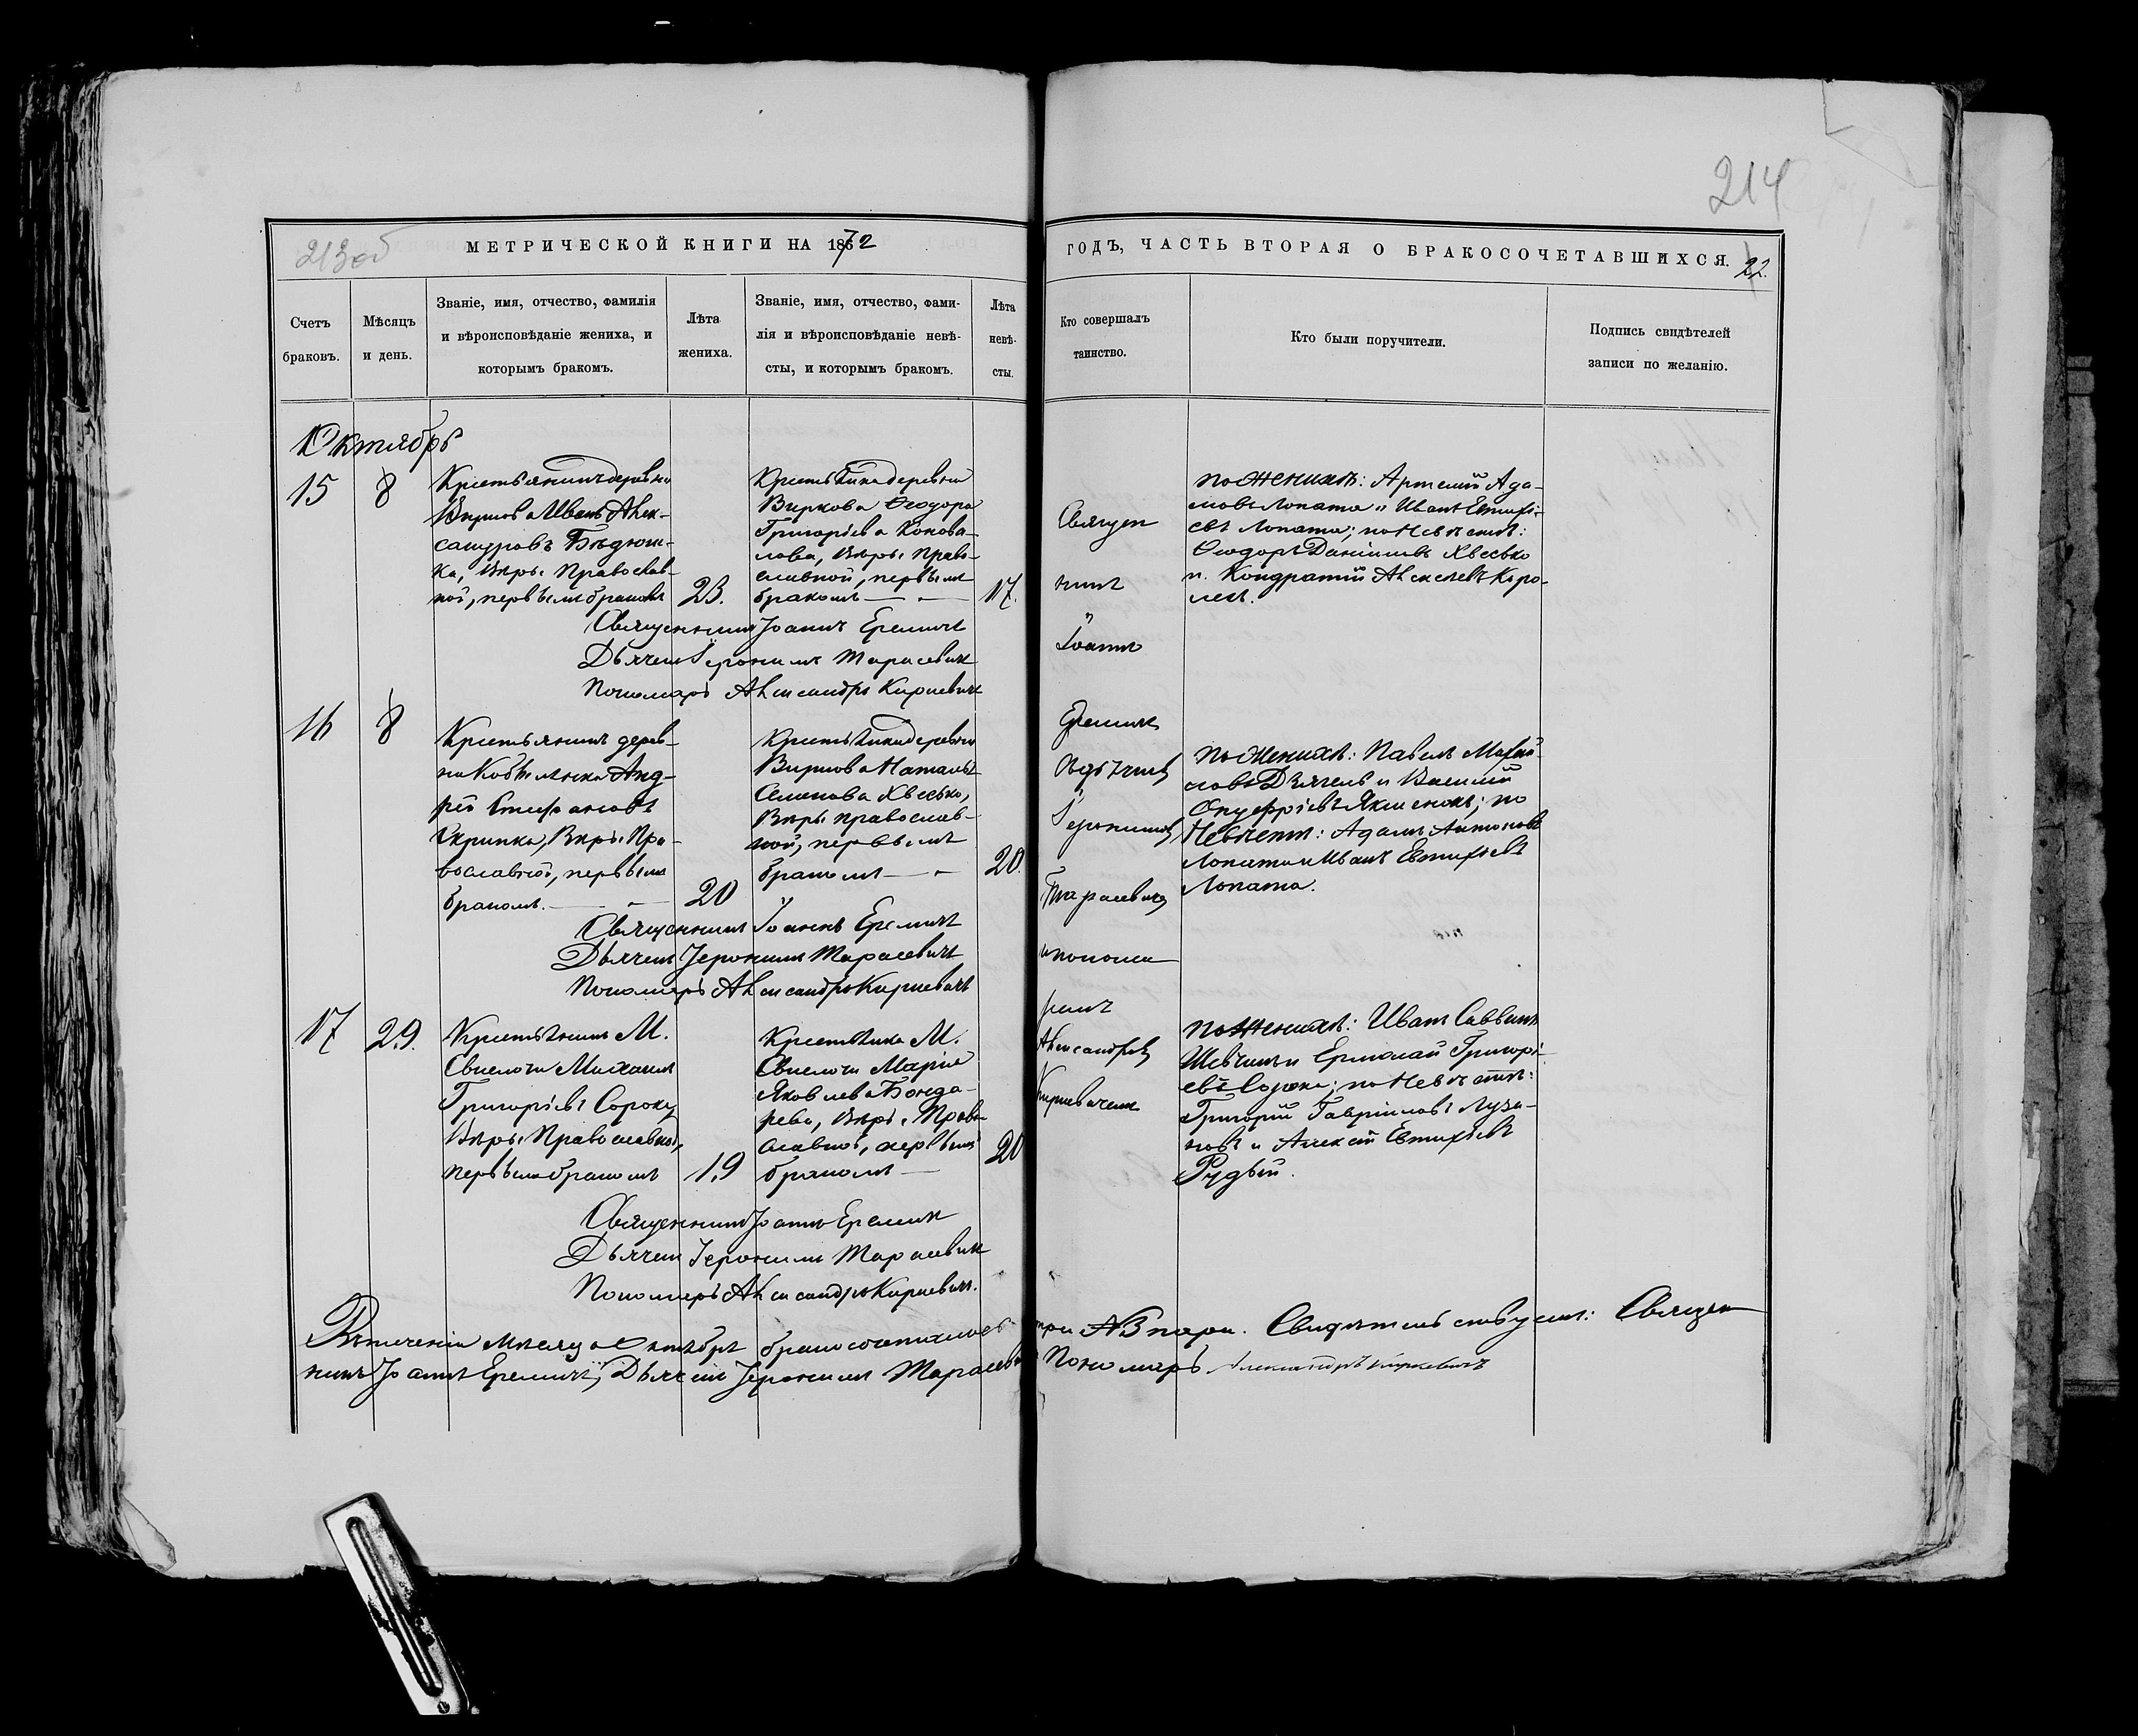 214
213об
МЕТРИЧЕСКОЙ КНИГИ НА 1872
ГОДЪ, ЧАСТЬ ВТОРАЯ О БРАКОСОЧЕТАВШИХСЯ. 22.
Счетъ
браковъ.
Мѣсяцъ
и день.
Званіе, имя, отчество, фамилія
и вѣроисповѣданіе жениха, и
которымъ бракомъ.
Лѣта
жениха.
Званіе, имя, отчество, фами-
лія и вѣроисповѣданіе невѣ-
сты, и которымъ бракомъ.
Лѣта
невѣ-
сты.
Кто совершалъ
таинство.
Кто были поручители.
Подпись свидѣтелей
записи по желанію.
Октябрь
15
8
Крестьянинъ деревни
Виркова Иванъ Алек-
сандровъ Бѣдюш-
ка, Вѣры Православ-
ной, первымъ бракомъ
23.
Крестьянка деревни
Виркова Ѳеодора
Григорьева Конова-
лова, Вѣры Право-
славной, первымъ
бракомъ
17.
Священ
никъ
Іоаннъ
Еремичъ
съ дьячкомъ
Іеронимомъ
Тарасевичемъ
и понома
ремъ
Александромъ
Киркевичемъ
по Женихѣ: Артемій Ада-
мовъ Лопата и Иванъ Евтихі-
евъ Лопата; по Невѣстѣ:
Ѳеодоръ Даніиловъ Хвесько
и Кондратій Алексѣевъ Коро-
левъ.
Священникъ Іоаннъ Еремичъ
Дьячекъ Іеронимъ Тарасевичъ
Пономарь Александръ Киркевичъ
16
8
Крестьянинъ дерев-
ни Кобылянка Анд-
рей Стефановъ
Скрипка, Вѣры Пра-
вославной, первымъ
бракомъ.
20
Крестьянка деревни
Виркова Наталья
Семенова Хвесько,
Вѣры православ-
ной, первымъ
бракомъ
20.
по Женихѣ: Павелъ Михай-
ловъ Дьячекъ и Василій
Онуфріевъ Якименокъ; по
Невѣстѣ: Адамъ Антоновъ
Лопата и Иванъ Евтихіевъ
Лопата.
Священникъ Іоаннъ Еремичъ
Дьячекъ Іеронимъ Тарасевичъ
Пономарь Александръ Киркевичъ
17
29.
Крестьянинъ М.
Свислочи Михаилъ
Григорьевъ Сорока,
Вѣры Православной,
первымъ бракомъ
19
Крестьянка М.
Свислочи Марія
Яковлева Бонда-
рева, Вѣры Право-
славной, первымъ
бракомъ
20
по Женихѣ: Иванъ Саввинъ
Шевчикъ и Ермолай Григорі-
евъ Сорока; по Невѣстѣ:
Григорій Гавріиловъ Луза-
новъ и Алексѣй Евтихіевъ
Рудый.
Священникъ Іоаннъ Еремичъ
Дьячекъ Іеронимъ Тарасевичъ
Пономарь Александръ Киркевичъ.
Въ теченіи мѣсяца Октября бракосочеталось три №3 пары. Свидѣтельствуемъ: Священ
никъ Іоаннъ Еремичъ, Дьячекъ Іеронимъ Тарасевичъ Пономарь Александръ Киркевичъ